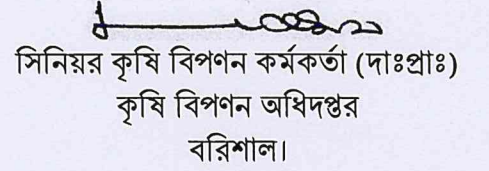 সিনিয়র কৃষি বিপণন কর্মকর্তা (দাঃপ্রাঃ)
কৃষি বিপণন অধিদপ্তর
বরিশাল।